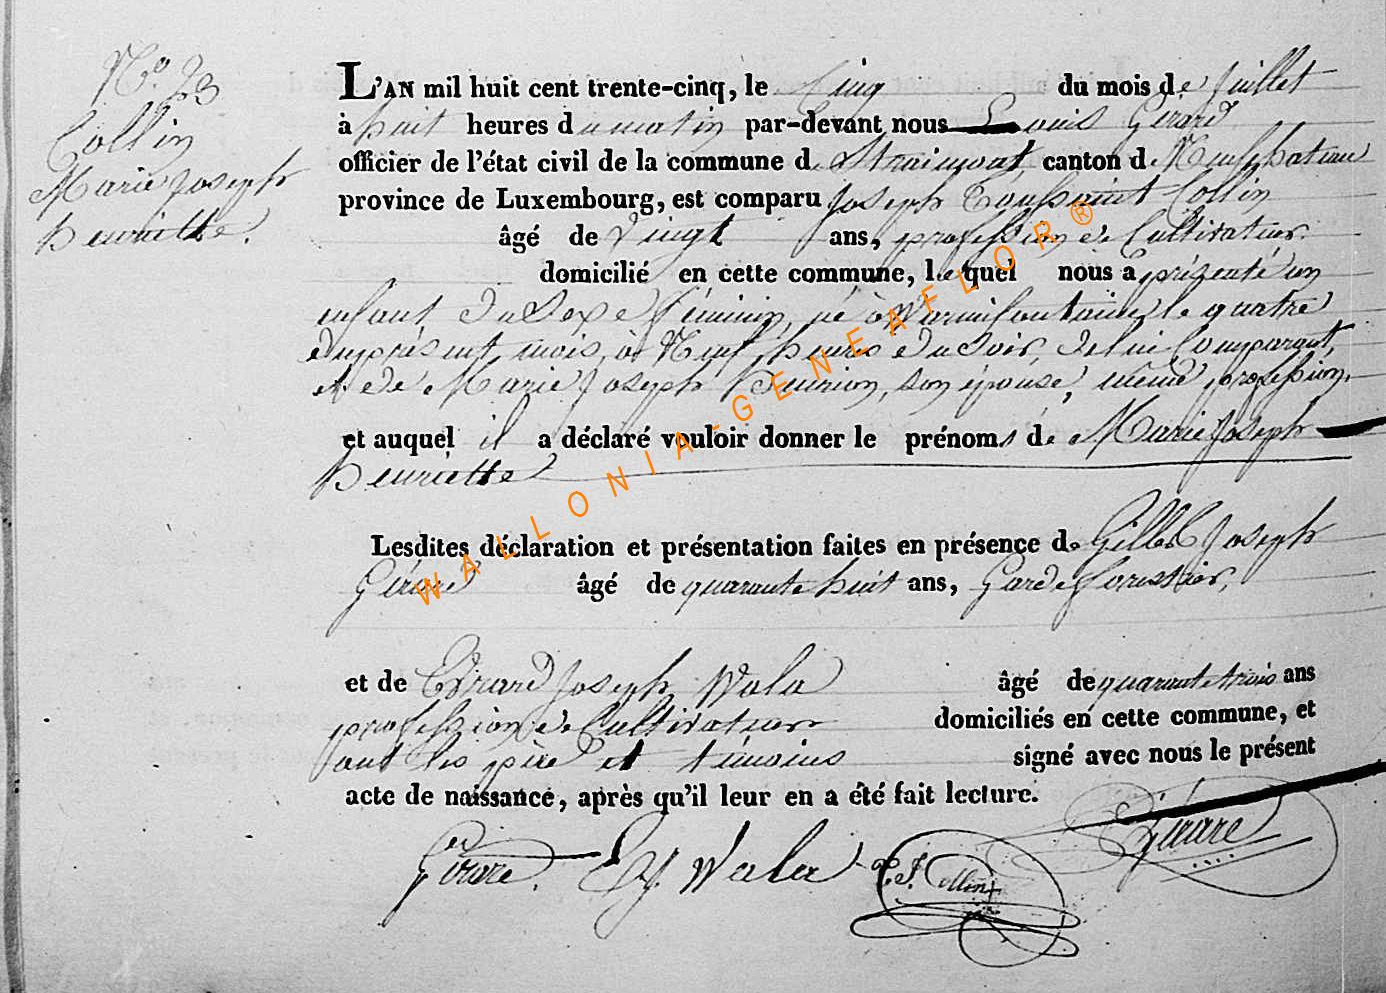 N.° 23
Collin
Marie Joseph
henriette.
L'AN mil huit cent trente-cinq, le Cinq du mois de Juillet
à huit heures du matin par-devant nous Louis Gérard
officier de l'état civil de la commune de Straimont, canton de Neufchateau
province de Luxembourg, est comparu Joseph Toussaint Collin
âgé de Vingt ans, profession de Cultivateur.
domicilié en cette commune, lequel nous a présenté un
enfant du Sexe féminin, né à Warmifontaine, le quatre
du présent, mois, à Neuf heures du Soir, de lui Comparant,
et de Marie Joseph Henrion, son épouse, même profession,
et auquel il a déclaré vouloir donner le prénoms de Marie Joseph
henriette
Lesdites déclaration et présentation faites en présence de Gilles Joseph
Gérard âgé de quarante huit ans, Garde forestier,
et de Gérard Joseph Wala âgé de quarante trois ans
profession de Cultivateur domiciliés en cette commune, et
ont les père et témoins signé avec nous le présent
acte de naissance, après qu'il leur en a été fait lecture.
Gérard. G J Wala T. J. Collin Gérard
WALLONIA-GENEAFLOR®